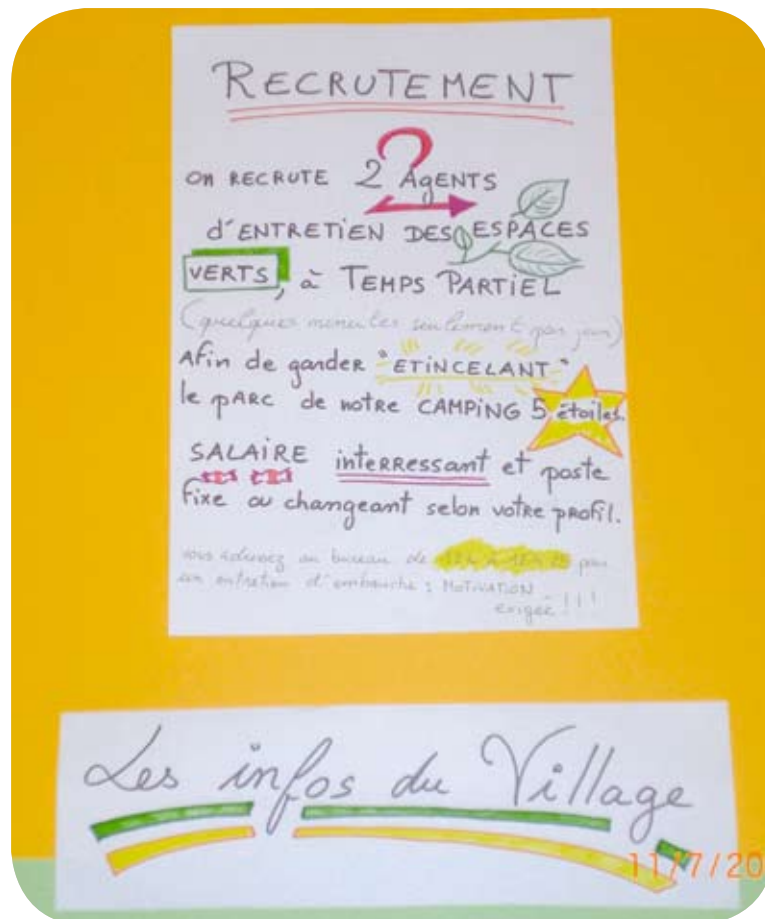 RECRUTEMENT
On RECRUTE 2 AgENTS
d'ENTRETiEN DES ESPACES
VERTS, à TEMPS PARTiEL
(quelques minutes seulement par jour)
Afin de garder "ETiNCELANT"
le pARC de notre CAMPiNG 5 étoiles.
SALAiRE inteRRessant et poste
fixe ou changeant selon votre pRofil.
vous adressez au bureau de pour
un entretien d'embauche : MOTiVATiON
exigée !!!
Les infos du Village
11/7/20